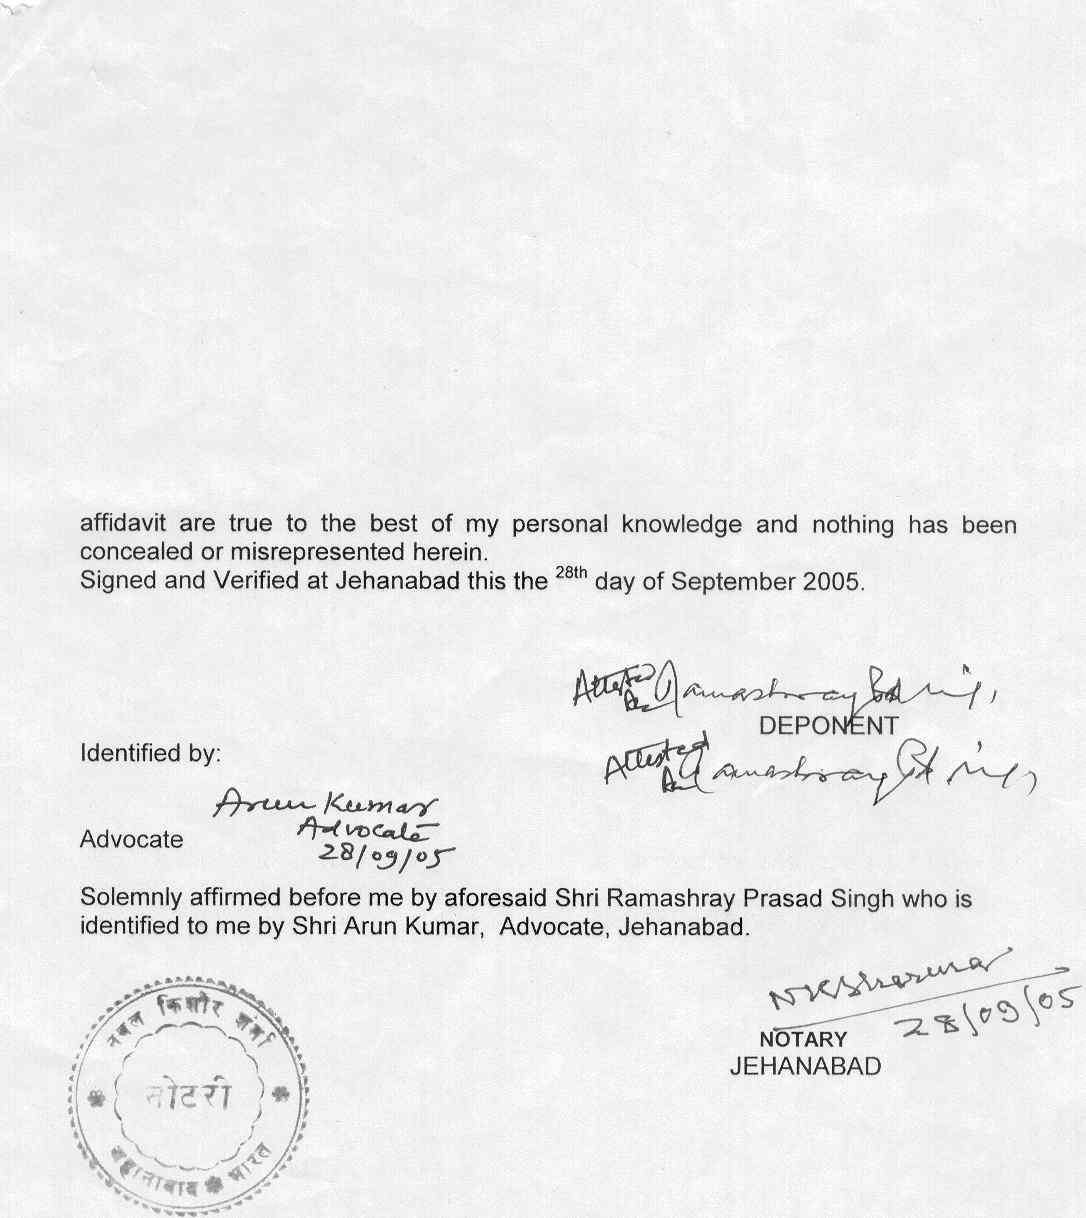 affidavit are true to the best of my personal knowledge and nothing has been
concealed or misrepresented herein.
Signed and Verified at Jehanabad this the 28th day of September 2005.
Attested Ramashray Pd Singh
DEPONENT
Identified by:
Attested Ramashray Pd Singh
Arun Kumar
Advocate
28/09/05
Advocate
Solemnly affirmed before me by aforesaid Shri Ramashray Prasad Singh who is
identified to me by Shri Arun Kumar, Advocate, Jehanabad.
NKSharma
28/09/05
NOTARY
JEHANABAD
नवल किशोर शर्मा
नोटरी
जहानाबाद भारत